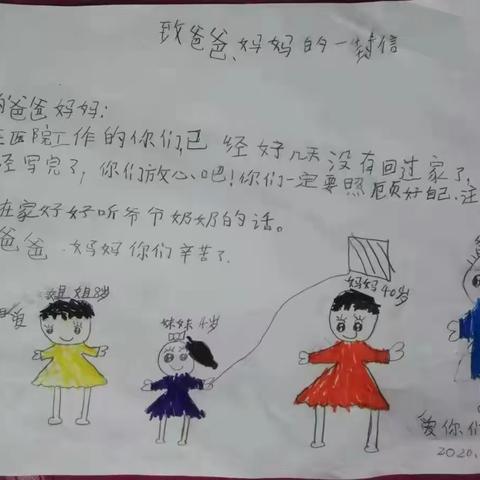 致爸爸、妈妈的一封信
爸爸妈妈:
医院工作的你们已经好几天没有回过家了,
经写完了,你们放心吧!你们一定要照顾好自己.注
在家好好听爷爷奶奶的话。
爸爸、妈妈你们辛苦了.
姐姐8岁
妹妹4岁
妈妈40岁
爱你们
2020.